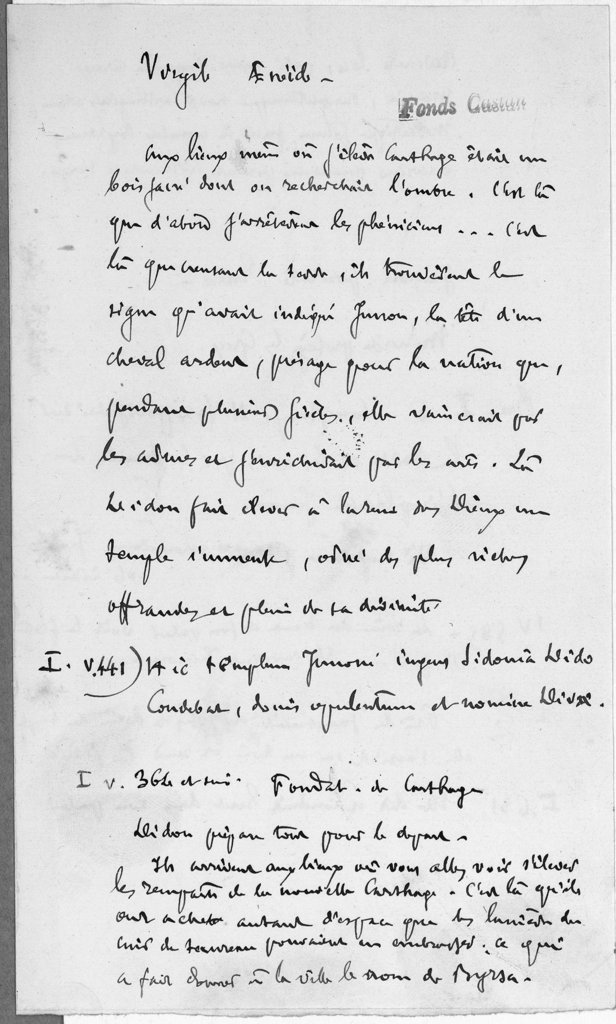 Virgile Enéide -
Fonds Castan
Aux lieux même où s'éleva Carthage était un
bois sacré dont on recherchait l'ombre. C'est là
que d'abord s'arrêtèrent les phéniciens ... C'est
là que creusant la terre, ils trouvèrent le
signe qu'avait indiqué Junon, la tête d'un
cheval ardent, présage pour la nation que,
pendant plusieurs siècles, elle vaincrait par
les armes et s'enrichirait par les arts. Là
Didon fait élever à la reine des Dieux un
temple immense, orné des plus riches
offrandes et plein de sa divinité
I. v. 441) Hic templum Junoni ingens Sidonia Dido
Condebat, donis opulentum et numine Divæ.
I v. 364 et sui. Fondat. de Carthage
Didon prépare tout pour le départ -
Ils arrivent aux lieux où vous allez voir s'élever
les remparts de la nouvelle Carthage. C'est là qu'ils
ont acheté autant d'espace que les lanières du
cuir de taureau pouvaient en embrasser; ce qui
a fait donner à la ville le nom de Byrsa.